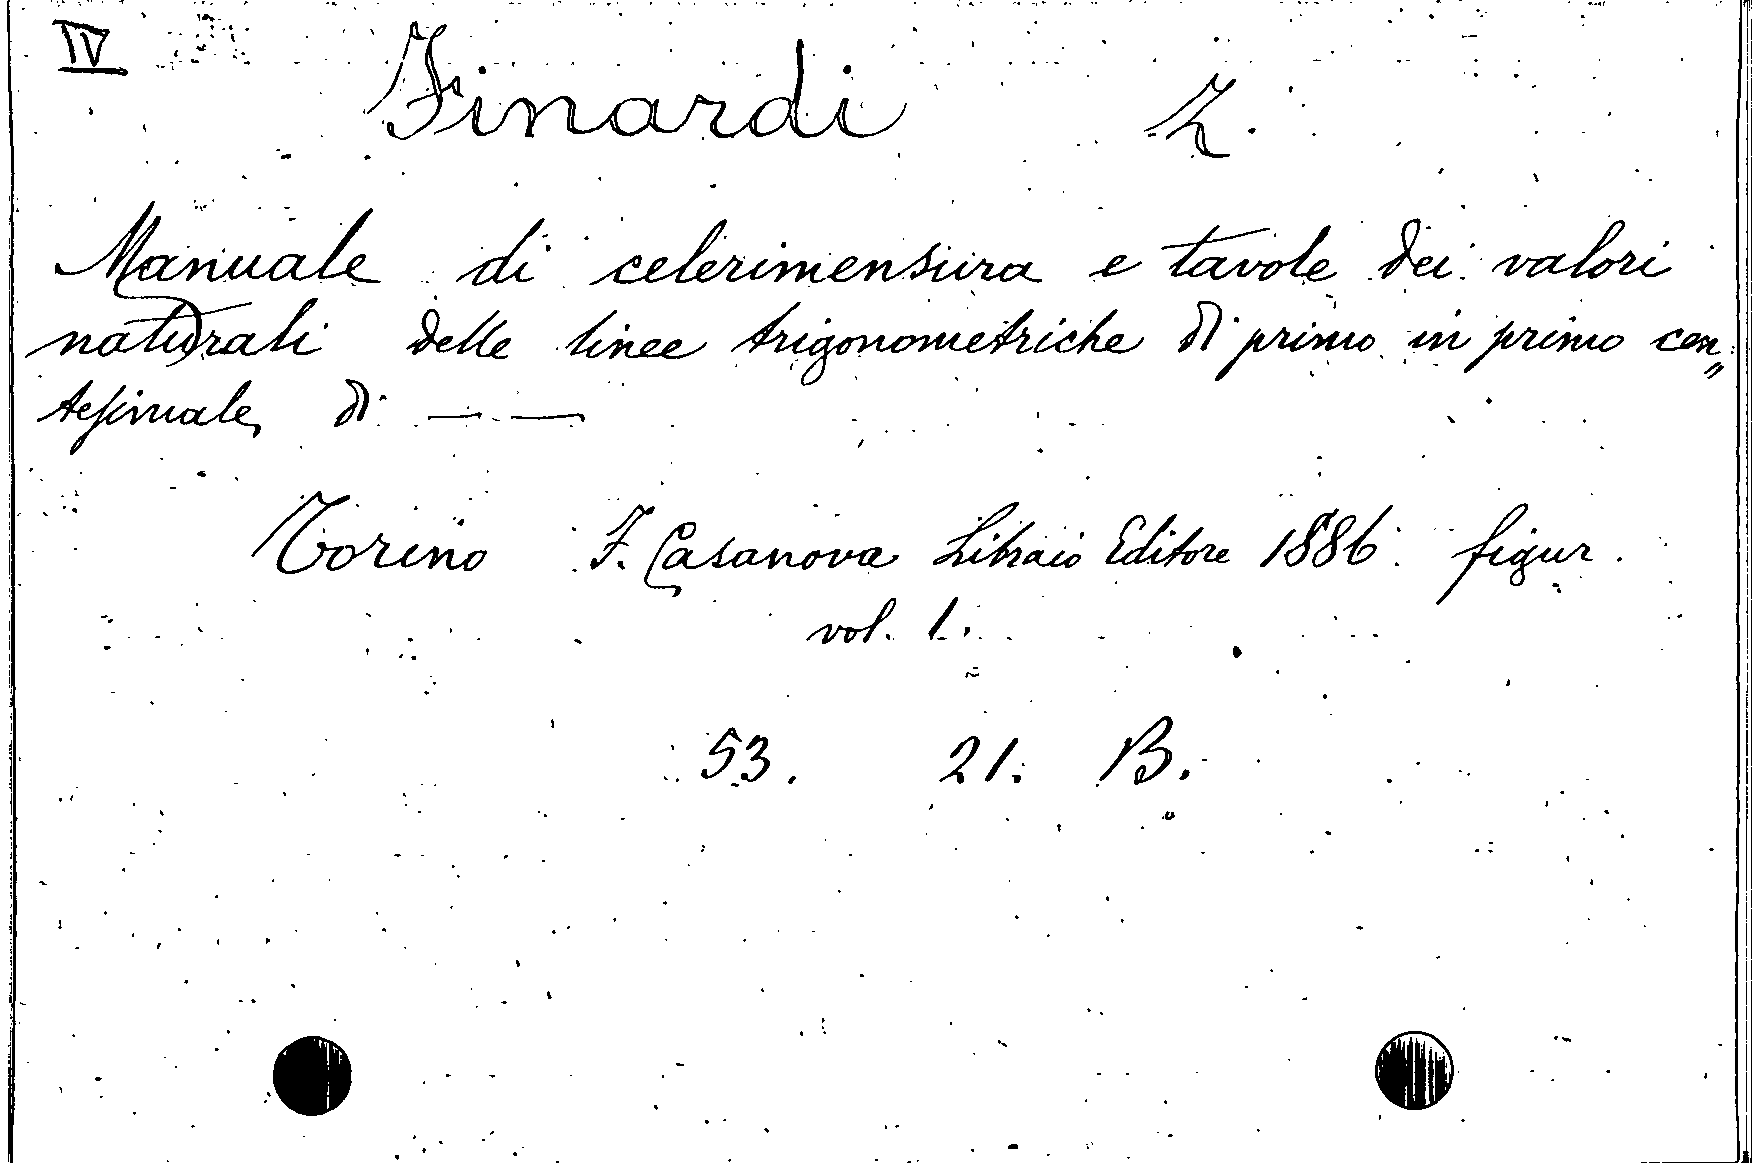 IV
Finardi Z.
Manuale di celerimensura e tavole dei valori
naturali delle linee trigonometriche di primo in primo cen„
tesimale, di — —
Torino F. Casanova Libraio Editore 1886. figur.
vol. 1.
53. 21. B.